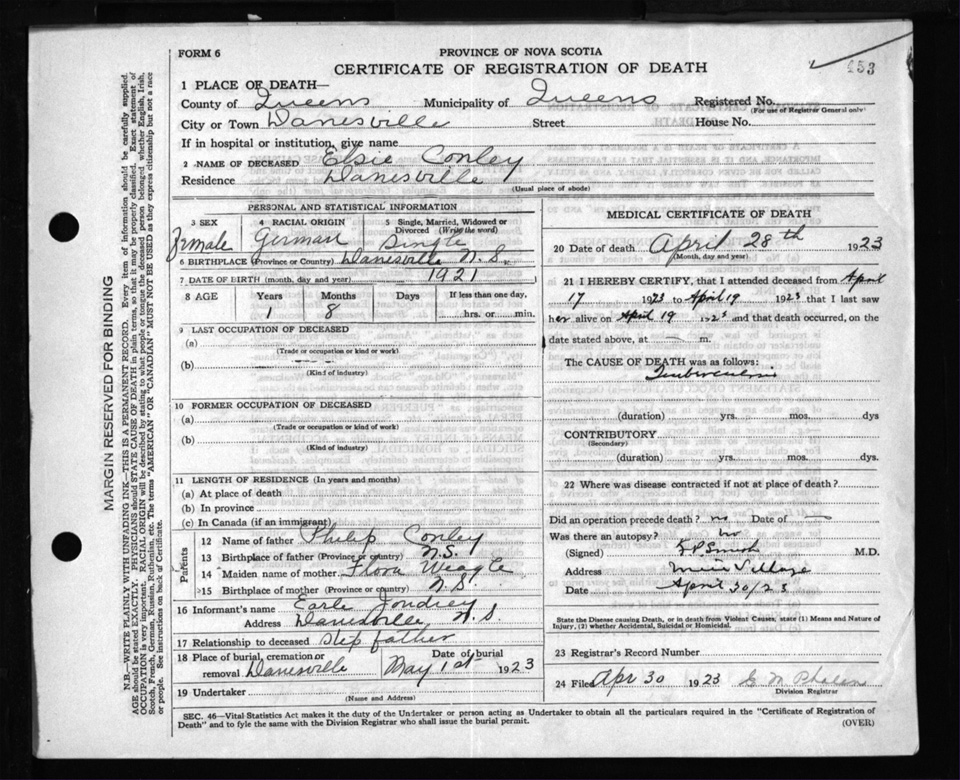 FORM 6
PROVINCE OF NOVA SCOTIA
CERTIFICATE OF REGISTRATION OF DEATH
453
1 PLACE OF DEATH—
County of Queens Municipality of Queens Registered No.
(For use of Registrar General only)
City or Town Danesville Street House No.
If in hospital or institution, give name
2 NAME OF DECEASED Elsie Conley
Residence Danesville
(Usual place of abode)
PERSONAL AND STATISTICAL INFORMATION
3 SEX 4 RACIAL ORIGIN 5 Single, Married, Widowed or Divorced (Write the word)
Female German Single
6 BIRTHPLACE (Province or Country) Danesville N.S.
7 DATE OF BIRTH (month, day and year) 1921
8 AGE Years Months Days If less than one day,
1 8 hrs. or min.
9 LAST OCCUPATION OF DECEASED
(a)
(Trade or occupation or kind or work)
(b)
(Kind of industry)
10 FORMER OCCUPATION OF DECEASED
(a)
(Trade or occupation or kind of work)
(b)
(Kind of industry)
11 LENGTH OF RESIDENCE (In years and months)
(a) At place of death
(b) In province
(c) In Canada (if an immigrant)
Parents
12 Name of father Philip Conley
13 Birthplace of father (Province or country) N.S.
14 Maiden name of mother Flora Weagle
15 Birthplace of mother (Province or country) N.S.
16 Informant's name Earle Joudrey
Address Danesville N.S.
17 Relationship to deceased Step father
18 Place of burial, cremation or removal Danesville Date of burial May 1st 1923
19 Undertaker
(Name and Address)
MEDICAL CERTIFICATE OF DEATH
20 Date of death April 28th 1923
(Month, day and year)
21 I HEREBY CERTIFY, that I attended deceased from April
17 1923 to April 19 1923 that I last saw
her alive on April 19 1923 and that death occurred, on the
date stated above, at — m.
The CAUSE OF DEATH was as follows:
Tuberculosis
(duration) yrs. mos. dys
CONTRIBUTORY
(Secondary)
(duration) yrs. mos. dys.
22 Where was disease contracted if not at place of death?
Did an operation precede death? no Date of —
Was there an autopsy? no
(Signed) Smith M.D.
Address Village
Date April 30/23
State the Disease causing Death, or in death from Violent Causes, state (1) Means and Nature of
Injury, (2) whether Accidental, Suicidal or Homicidal.
23 Registrar's Record Number
24 Filed Apr 30 1923
Division Registrar
SEC. 46—Vital Statistics Act makes it the duty of the Undertaker or person acting as Undertaker to obtain all the particulars required in the "Certificate of Registration of
Death" and to fyle the same with the Division Registrar who shall issue the burial permit.
(OVER)
MARGIN RESERVED FOR BINDING
N.B.—WRITE PLAINLY WITH UNFADING INK—THIS IS A PERMANENT RECORD. Every item of information should be carefully supplied.
AGE should be stated EXACTLY. PHYSICIANS should STATE CAUSE OF DEATH in plain terms, so that it may be properly classified. Exact statement of
OCCUPATION is very important. RACIAL ORIGIN will be described by stating to what people or tongue the deceased person belonged whether English, Irish,
Scotch, French, German, Russian, Ruthenian, etc. The terms "AMERICAN" OR "CANADIAN" MUST NOT BE USED as they express citizenship but not a race
or people. See instructions on back of Certificate.